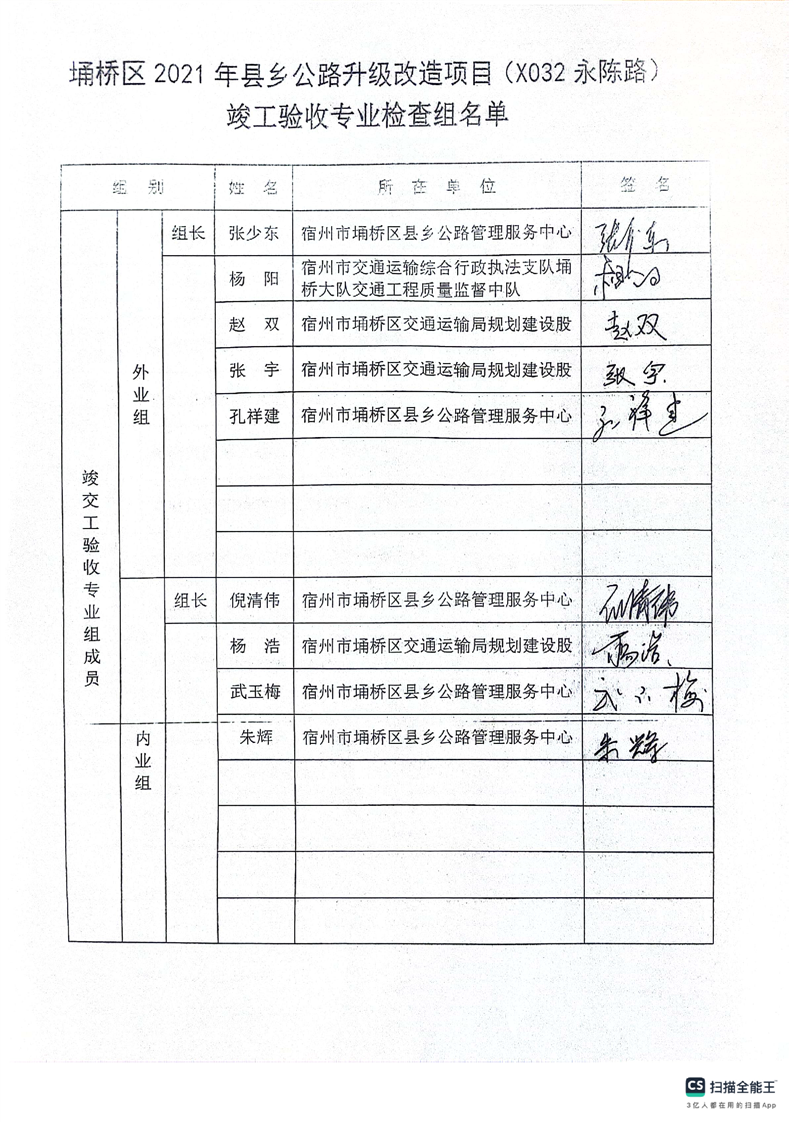 埇桥区 2021 年县乡公路升级改造项目（X032 永陈路）
竣工验收专业检查组名单
组 别 姓 名 所 在 单 位 签 名
组长 张少东 宿州市埇桥区县乡公路管理服务中心 张少东
杨 阳 宿州市交通运输综合行政执法支队埇
桥大队交通工程质量监督中队
赵 双 宿州市埇桥区交通运输局规划建设股 赵双
张 宇 宿州市埇桥区交通运输局规划建设股 张宇
孔祥建 宿州市埇桥区县乡公路管理服务中心 孔祥建
外业组
竣交工验收专业组成员
组长 倪清伟 宿州市埇桥区县乡公路管理服务中心 倪清伟
杨 浩 宿州市埇桥区交通运输局规划建设股 杨浩
武玉梅 宿州市埇桥区县乡公路管理服务中心 武玉梅
朱辉 宿州市埇桥区县乡公路管理服务中心 朱辉
内业组
CS 扫描全能王
3亿人都在用的扫描App